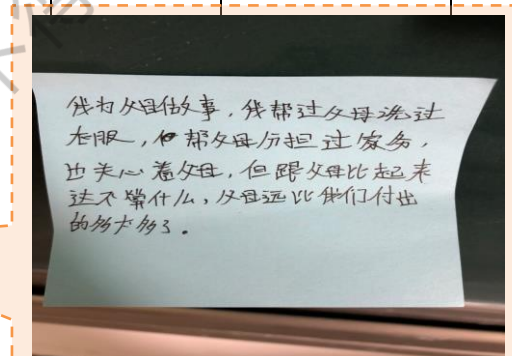 我为父母做事，我帮过父母洗过
衣服，也帮父母分担过家务，
也关心着父母，但跟父母比起来
这不算什么，父母远比我们付出
的多太多了。